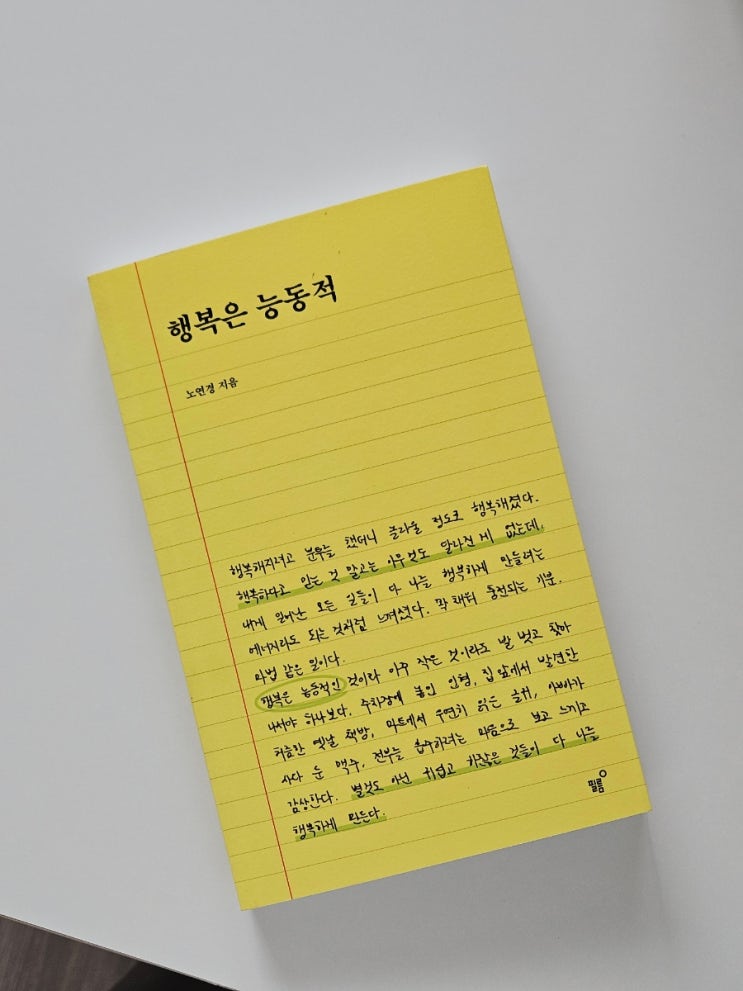 행복은 능동적
노연경 지음
행복해지려고 분투를 했더니 놀라울 정도로 행복해졌다.
행복하다고 믿는 것 말고는 아무것도 달라진 게 없는데,
내게 일어난 모든 일들이 다 나를 행복하게 만들려는
에너지라도 되는 것처럼 느껴졌다. 꽉 채워 충전되는 기분.
마법 같은 일이다.
행복은 능동적인 것이다 아주 작은 것이라도 발 벗고 찾아
나서야 하나보다. 주차장에 놓인 인형, 집 앞에서 발견한
허름한 옛날 책방, 마트에서 우연히 읽은 글귀, 아빠가
사다 둔 맥주, 전부를 흡수하려는 마음으로 보고 느끼고
감상한다. 별것도 아닌 쉽고 하찮은 것들이 다 나를
행복하게 만든다.
필름